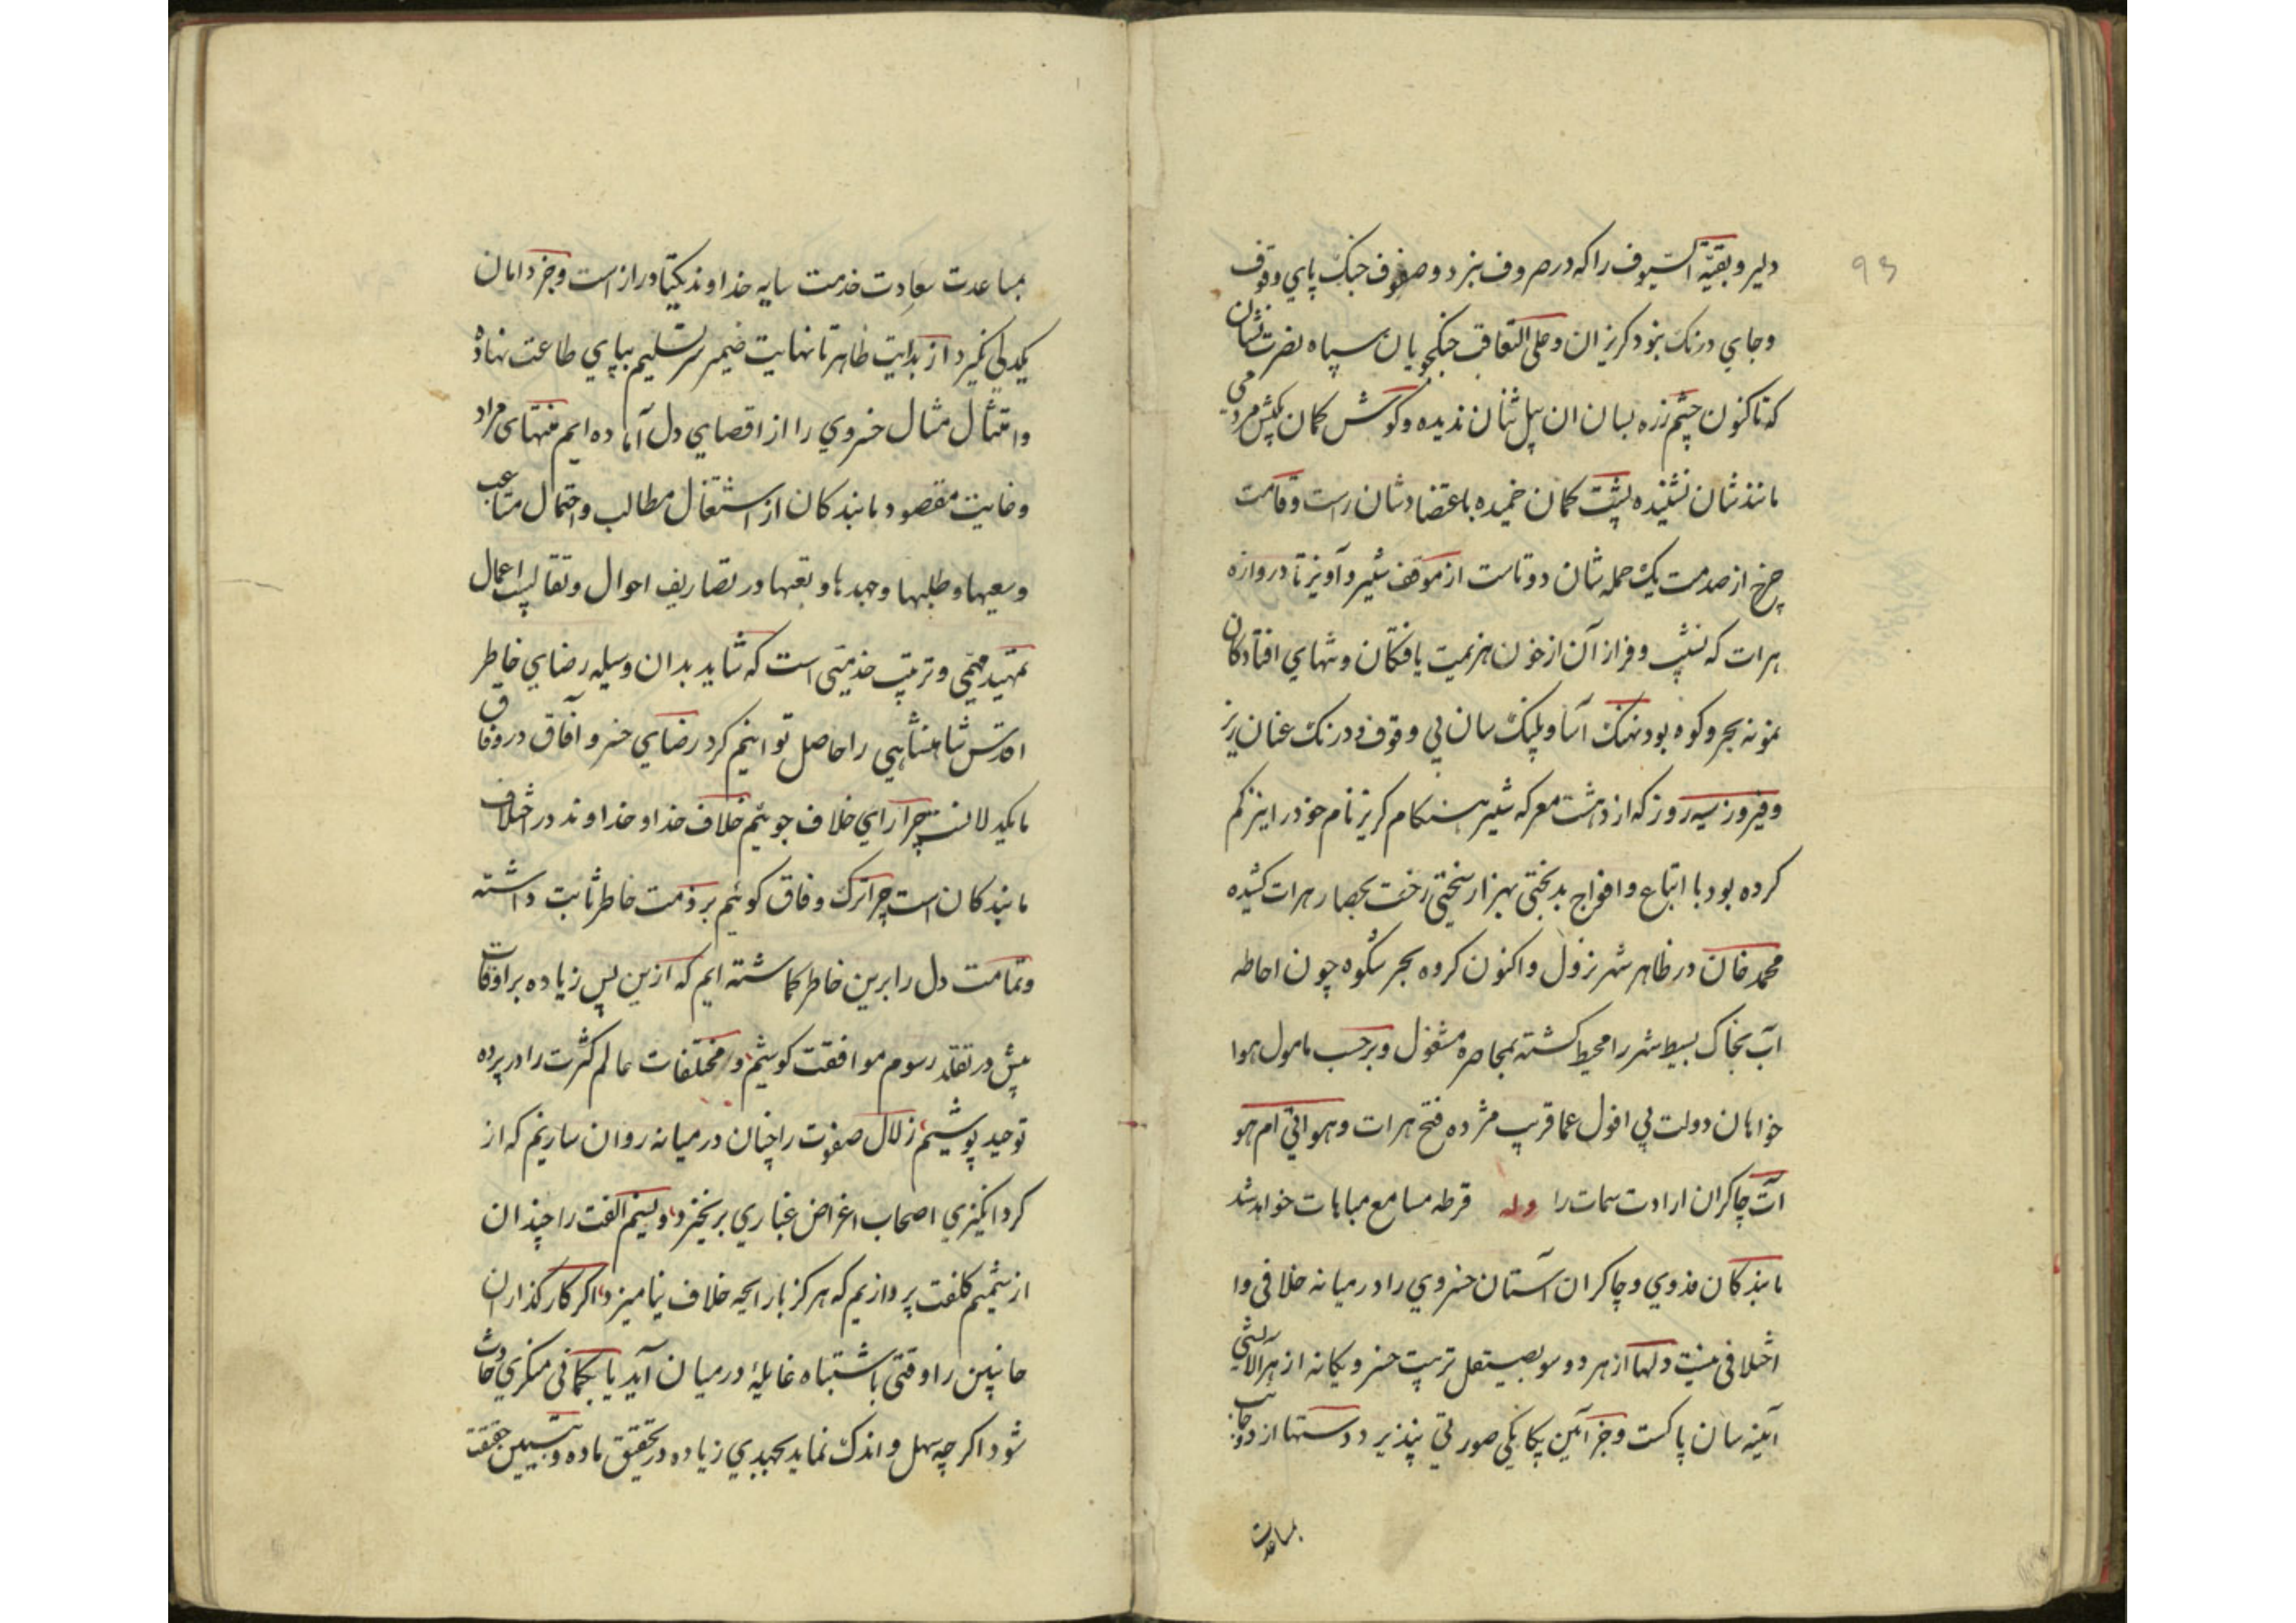 ۹۳
دلیر و بقیّة السّیوف را که در صروف نبرد و صفوف جنک پای وقوف
و جای درنک بنود کریزان و علی التعاقب جنکجویان سپاه نصرت نشان
که تاکنون چشم زره بسان ان پیل تنان ندیده و کوش کمان بکش مردمی
مانندشان نشنیده پشت کمان خمیده باعتضادشان راست و قامت
چرخ از صدمت یک حمله شان دوتاست از موقف ستیر و آویز تا دروازه
هرات که نشیب و فراز آن از خون هزیمت یافتکان و تنهای افتادکان
نمونه بحر و کوه بود نهنک آسا و پلنک سان بی وقوف و درنک عنان ریز
و فیروز سیه روز که از دهشت معرکه ستیر هنکام کریز نام خود را نیز کم
کرده بود با اتباع و افواج بدبختی بهزار سختی رخت بحصار هرات کشیده
محمد خان در ظاهر شهر نزول و اکنون کروه بحر شکوه چون احاطه
آب بخاک بسیط شهر را محیط کشته بمحاصره مشغول و برحسب مامول هوا
خواهان دولت بی افول عما قریب مژده فتح هرات و هوافی ام هو
آت چاکران ارادت سمات را وله قرطه مسامع مباهات خواهد شد
ما بندکان فدوی و چاکران آستان خسروی را در میانه خلافی و ا
اختلافی نیست دلها از هر دو سو بصیقل تربیت خسرو یکانه از هر آلایشی
آیینه سان پاکست و جز آئین یکانکی صورتی نپذیرد دستها از دو جانب
بمساعدت
بمساعدت سعادت خدمت سایه خداوند یکتا دراز است و جز دامان
یکدلی نکیرد از بدایت ظاهر تا نهایت ضمیر سر تسلیم بپای طاعت نهاده
و امتثال مثال خسروی را از اقصای دل آماده ایم منتهای مراد
و غایت مقصود ما بندکان از اشتغال مطالب و احتمال متاعب
و سعیها و طلبها و جهدها و تعبها در تصاریف احوال و تقالیب اعمال
تمهید مهمّی و ترتیب خدمتی است که شاید بدان وسیله رضای خاطر
اقدس شاهنشاهی را حاصل توانیم کرد رضای خسرو آفاق در وفاق
ما یکدلانست چرا رای خلاف جوئیم خلاف خدا و خداوند در اختلاف
ما بندکان است چرا ترک وفاق کوئیم بر ذمت خاطر ثابت داشته
و تمامت دل را برین خاطر کماشته ایم که ازین پس زیاده بر اوقات
پیش در تقلد رسوم موافقت کوشیم و مختلفات عالم کثرت را در پرده
توحید پوشیم زلال صفوت را چنان در میانه روان سازیم که از
کرد انکیزی اصحاب اغراض غباری برنخیزد و نسیم الفت را چندان
از شمیم کلفت پردازیم که هرکز با رایحه خلاف نیامیزد اکر کارکذاران
جانبین را وقتی باشتباه غایلهٔ در میان آید یا بکمانی منکری حادث
شود اکرچه سهل و اندک نماید بجهدی زیاده در تحقیق ماده و تبیین حقیقت